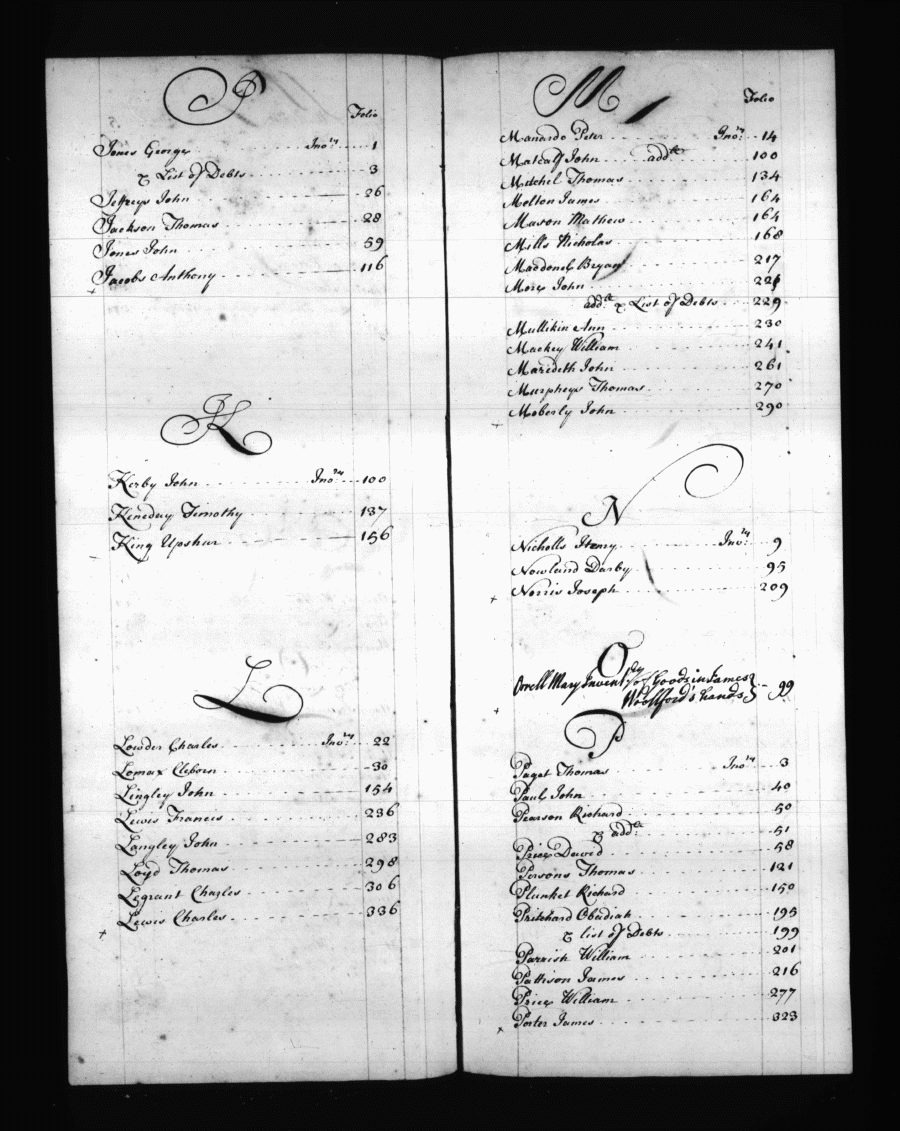 J
Folio
Jones George Inv.ry 1
& List of Debts 3
Jeffreys John 26
Jackson Thomas 28
Jones John 59
Jacobs Anthony 116
+
K
Kirby John Inv.ry 100
Keneday Timothy 137
King Upshur 156
+
L
Lowder Charles Inv.ry 22
Lomax Cleborn 30
Lingley John 154
Lewis Francis 236
Langley John 283
Loyd Thomas 298
Legrant Charles 306
Lewis Charles 336
+
M
Folio
Manardo Peter Inv.ry 14
Matcalf John add.l 100
Mitchel Thomas 134
Molton James 164
Mason Mathew 164
Mills Nicholas 168
Macdonel Bryan 217
More John 221
add.l & List of Debts 229
Mullikin Ann 230
Mackey William 241
Maredeth John 261
Murpheys Thomas 270
Moberly John 290
+
N
Nicholls Henry Inv.ry 9
Nowland Darby 95
Norris Joseph 209
+
O
Orrell Mary Invent.ry of Goods in James
Woolford's hands 99
+
P
Paget Thomas Inv.ry 3
Paul John 40
Pearson Richard 50
& add.l 51
Price David 58
Persons Thomas 121
Plunket Richard 150
Pritchard Obadiah 195
& list of Debts 199
Parrish William 201
Pattison James 216
Price William 277
Porter James 323
+